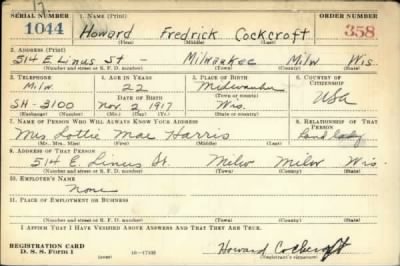 17.
SERIAL NUMBER 1. NAME (Print) ORDER NUMBER
1044 Howard Fredrick Cockcroft 358
(First) (Middle) (Last)
2. ADDRESS (Print)
514 E. Linus St - Milwaukee Milw Wis.
(Number and street or R. F. D. number) (Town) (County) (State)
3. TELEPHONE 4. AGE IN YEARS 5. PLACE OF BIRTH 6. COUNTRY OF CITIZENSHIP
Milw. 22 Milwaukee
DATE OF BIRTH (Town or county)
SH-3100 Nov. 2 1917 Wis. USA
(Exchange) (Number) (Mo.) (Day) (Yr.) (State or country)
7. NAME OF PERSON WHO WILL ALWAYS KNOW YOUR ADDRESS 8. RELATIONSHIP OF THAT PERSON
Mrs Lottie Mae Harris Landlady
(Mr., Mrs., Miss) (First) (Middle) (Last)
9. ADDRESS OF THAT PERSON
514 E. Linus St. Milw Milw Wis.
(Number and street or R. F. D. number) (Town) (County) (State)
10. EMPLOYER'S NAME
None
11. PLACE OF EMPLOYMENT OR BUSINESS
(Number and street or R. F. D. number) (Town) (County) (State)
I AFFIRM THAT I HAVE VERIFIED ABOVE ANSWERS AND THAT THEY ARE TRUE.
REGISTRATION CARD
D. S. S. Form 1 16-17105 Howard Cockcroft
(Registrant's signature)